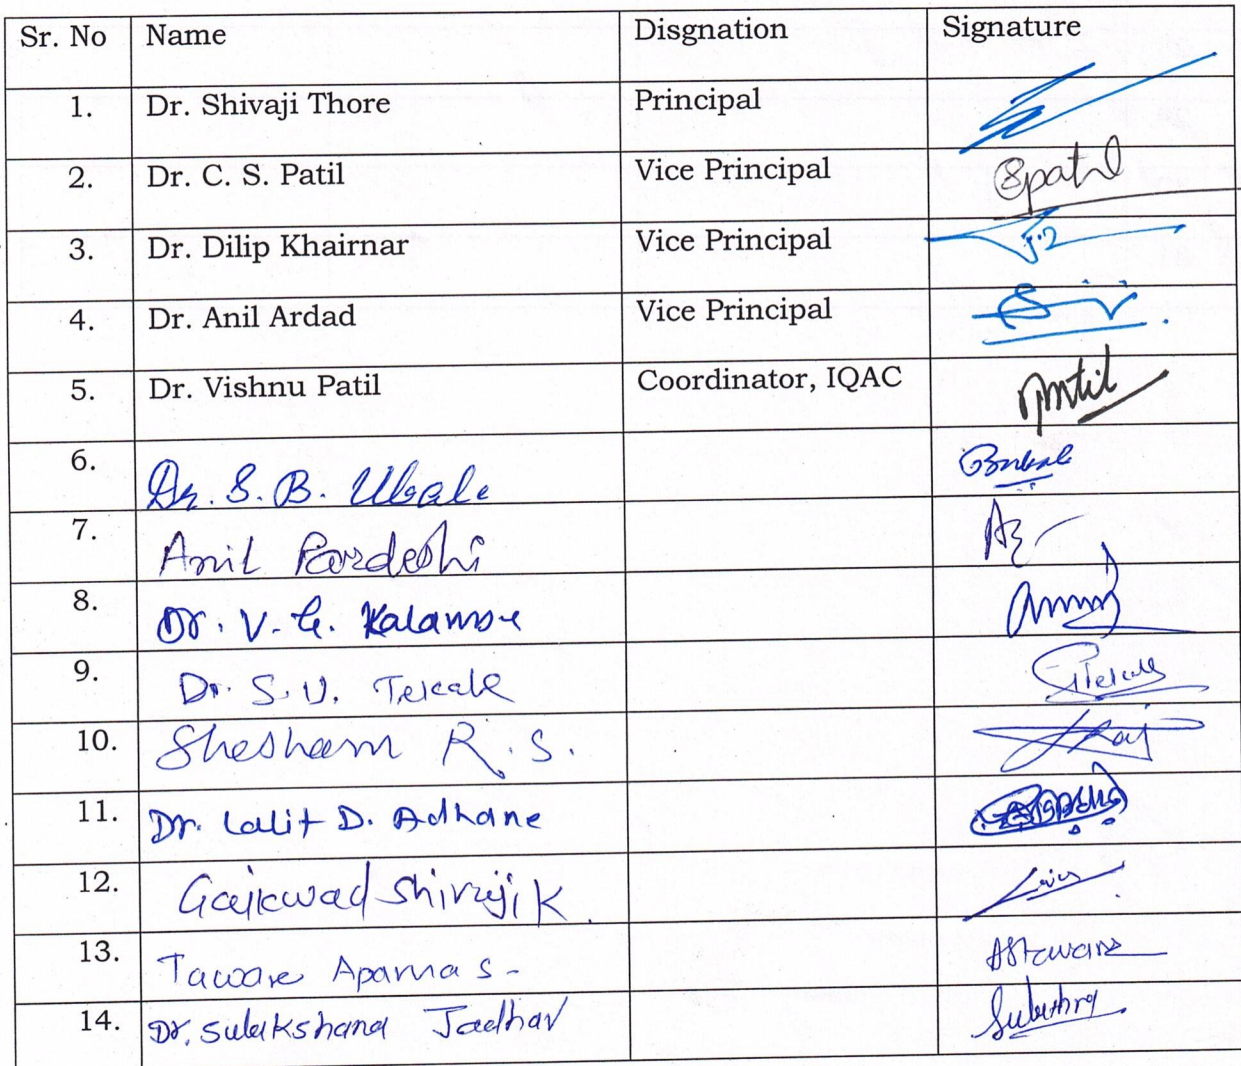 Sr. No Name Disgnation Signature
1. Dr. Shivaji Thore Principal
2. Dr. C. S. Patil Vice Principal Spatil
3. Dr. Dilip Khairnar Vice Principal
4. Dr. Anil Ardad Vice Principal
5. Dr. Vishnu Patil Coordinator, IQAC
6. Dr. S. B. Ubale
7. Anil Pardeshi
8. Dr. V. G. Kalamse
9. Dr. S. U. Tekale
10. Shesham R. S.
11. Dr. Lalit D. Adhane
12. Gaikwad Shivaji K.
13. Taware Aparna S- AStaware
14. Dr. Sulakshana Jadhav